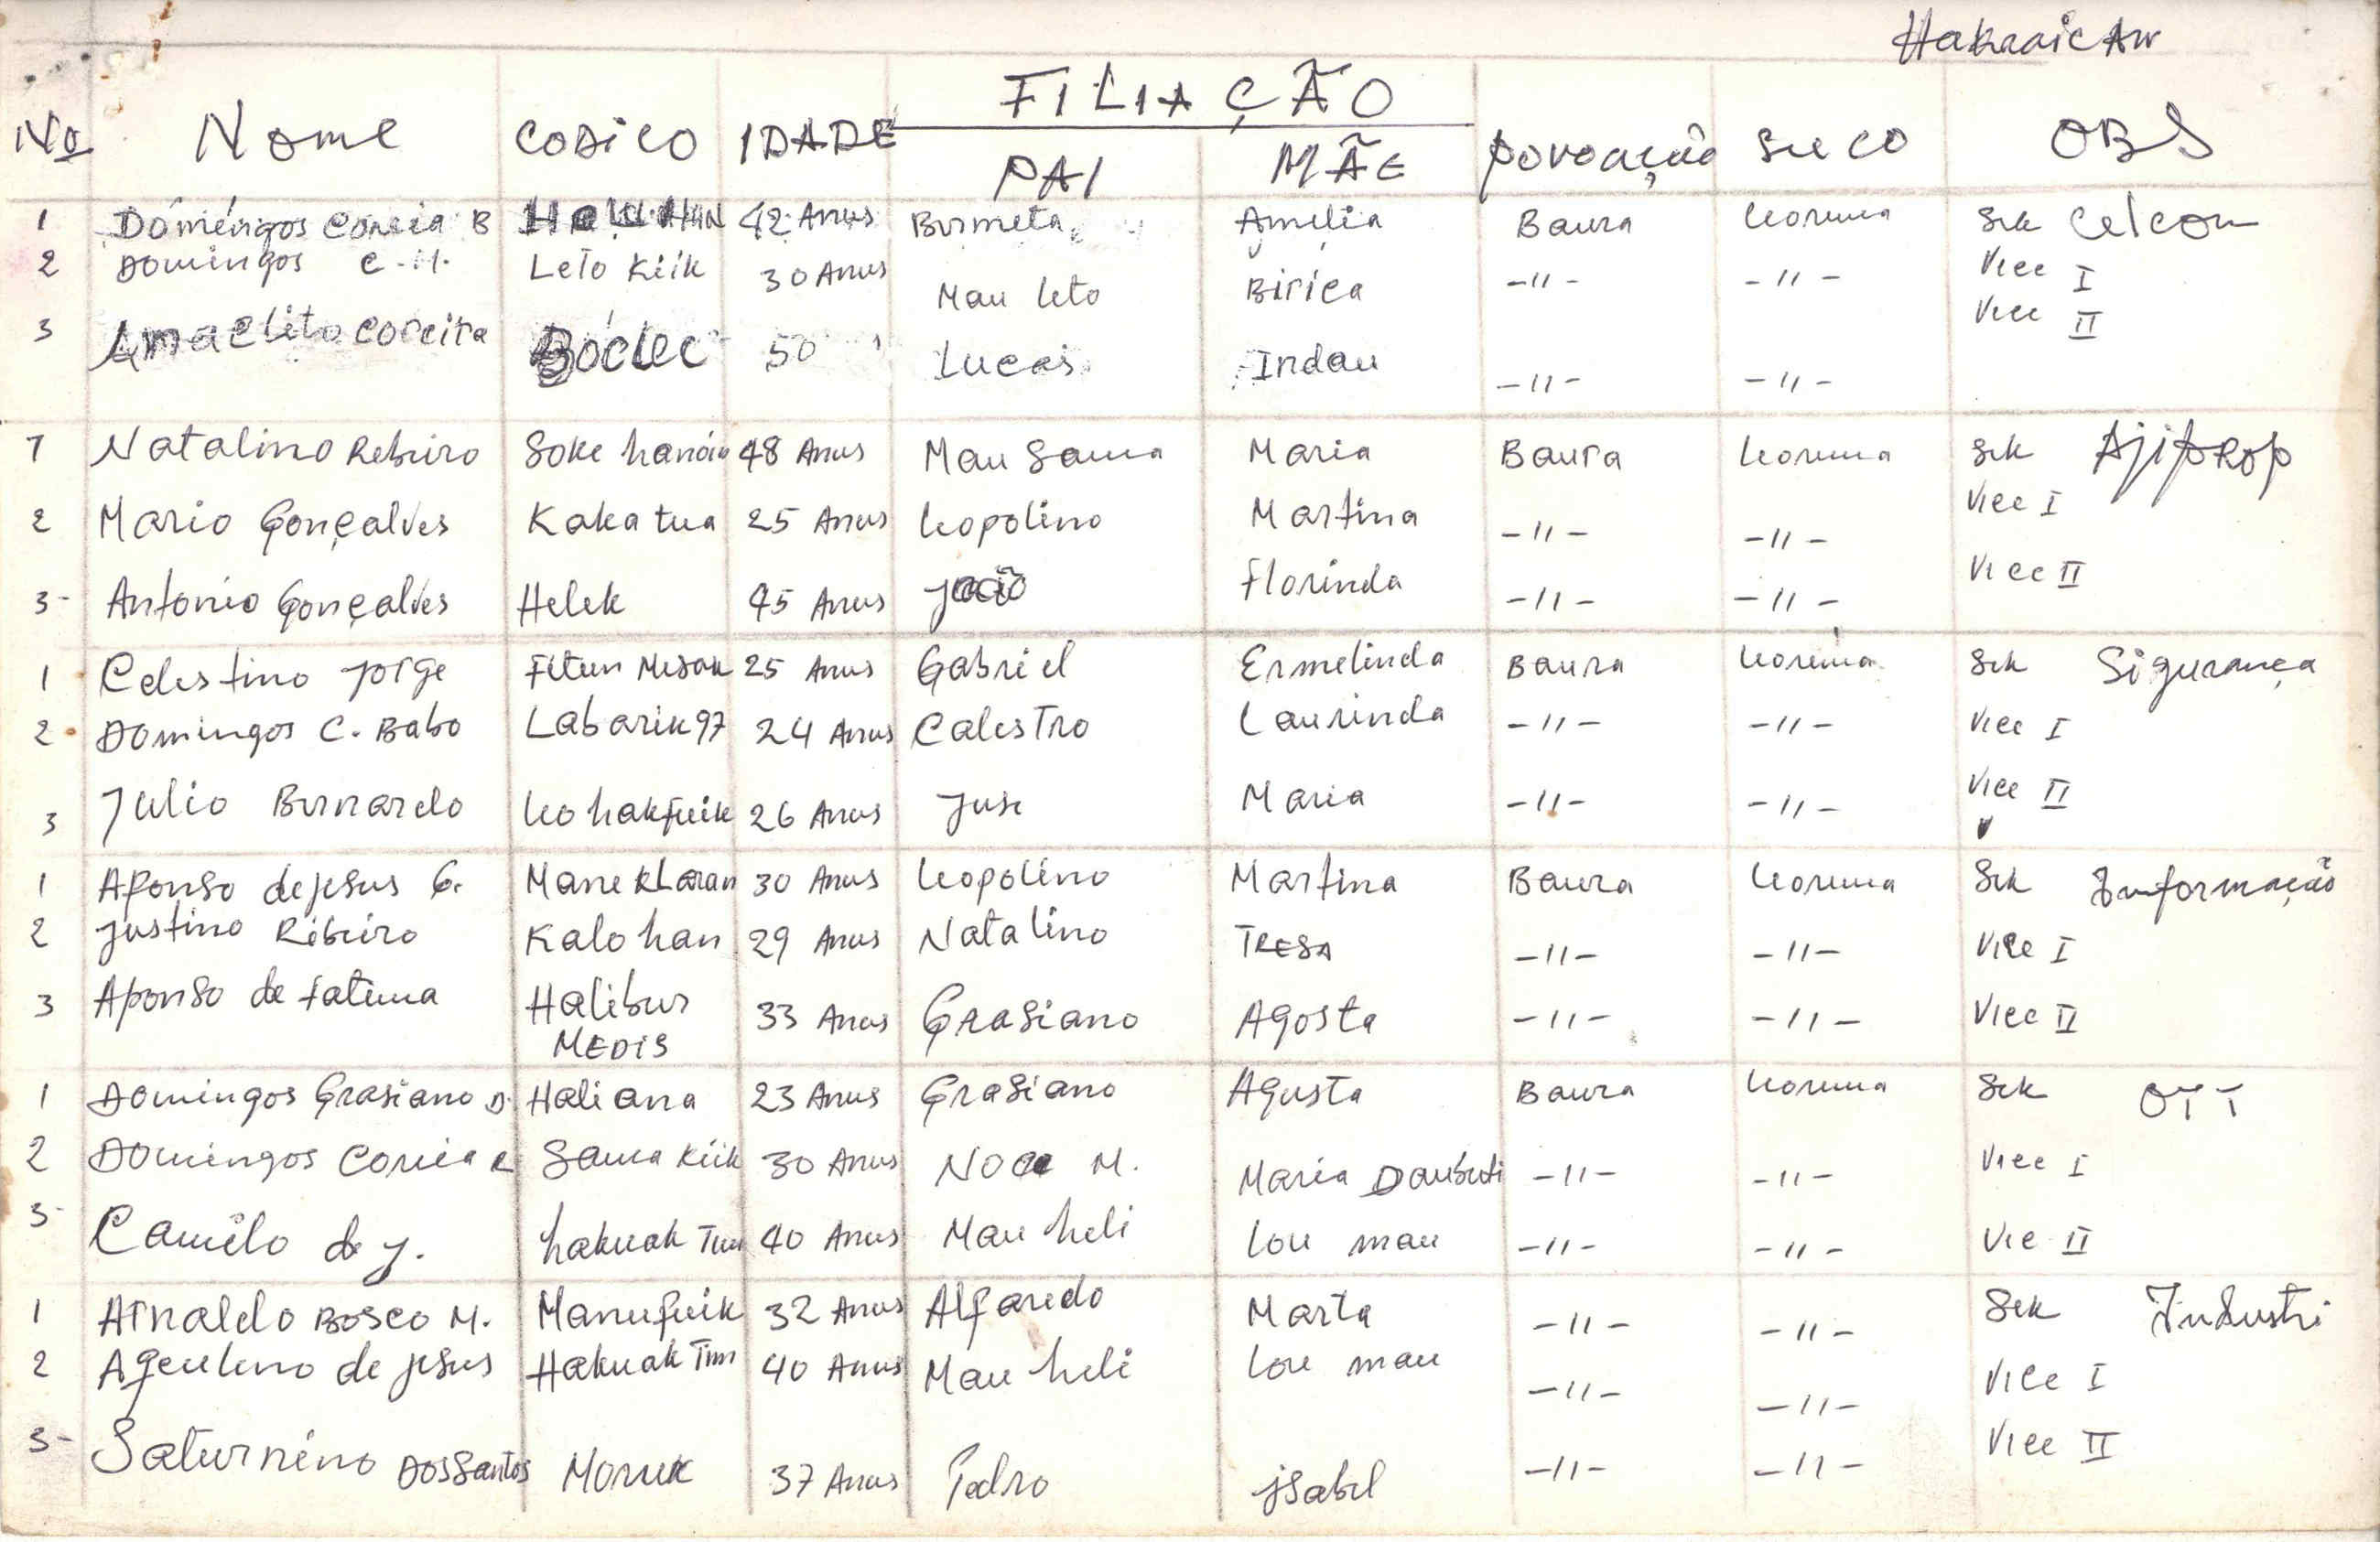 HakraicAw
FILIAÇÃO
No Nome CODICO IDADE PAI MÃE povoação suco OBS
1 Domingos Correia B 42 Anus Birmeta Amelia Baura leorema Sek Celcom
2 Domingos C.M. Leto Kiik 30 Anus Mau leto Birica -"- -"- Vice I
3 Amaclito correira Boclec 50 Lucas Indau -"- -"- Vice II
1 Natalino Rebiro Soke hanoin 48 Anus Mau Sama Maria Baura leorema Sek AjipRop
2 Mario Gonçalves Kakatua 25 Anus leopolino Martina -"- -"- Vice I
3- Antonio Gonçalves Helek 45 Anus joão Florinda -"- -"- Vice II
1 Celestino jorge Fitun Mesak 25 Anus Gabriel Ermelinda Baura leorema Sek Sigurança
2 Domingos C. Babo Labarik 97 24 Anus Calestro Laurinda -"- -"- Vice I
3 Julio Bernardo leohakfuik 26 Anus juse Maria -"- -"- Vice II
1 Aponso de jesus G. Maneklaran 30 Anus leopolino Martina Baura leorema Sek Informação
2 justino Ribeiro Kalohan 29 Anus Natalino TRESA -"- -"- Vice I
3 Aponso de Fatima Halibur 33 Anus Grasiano Agosta -"- -"- Vice II
MEDIS
1 Domingos Grasiano D. Haliana 23 Anus Grasiano Agusta Baura leorema Sek OTT
2 Domingos Correia R Sama kiik 30 Anus M. Maria Daubuti -"- -"- Vice I
3- Camilo de j. hakuak Tim 40 Anus Mau heli lou mau -"- -"- Vie II
1 Arnaldo Bosco M. Manufuik 32 Anus Alfaredo Marta -"- -"- Sek Industri
2 Ageuleno de jesus Hakuak Tim 40 Anus Mau heli lou mau -"- -"- Vice I
3- Saturnino Dos Santos Moruk 37 Anus Pedro jsabel -"- -"- Vice II